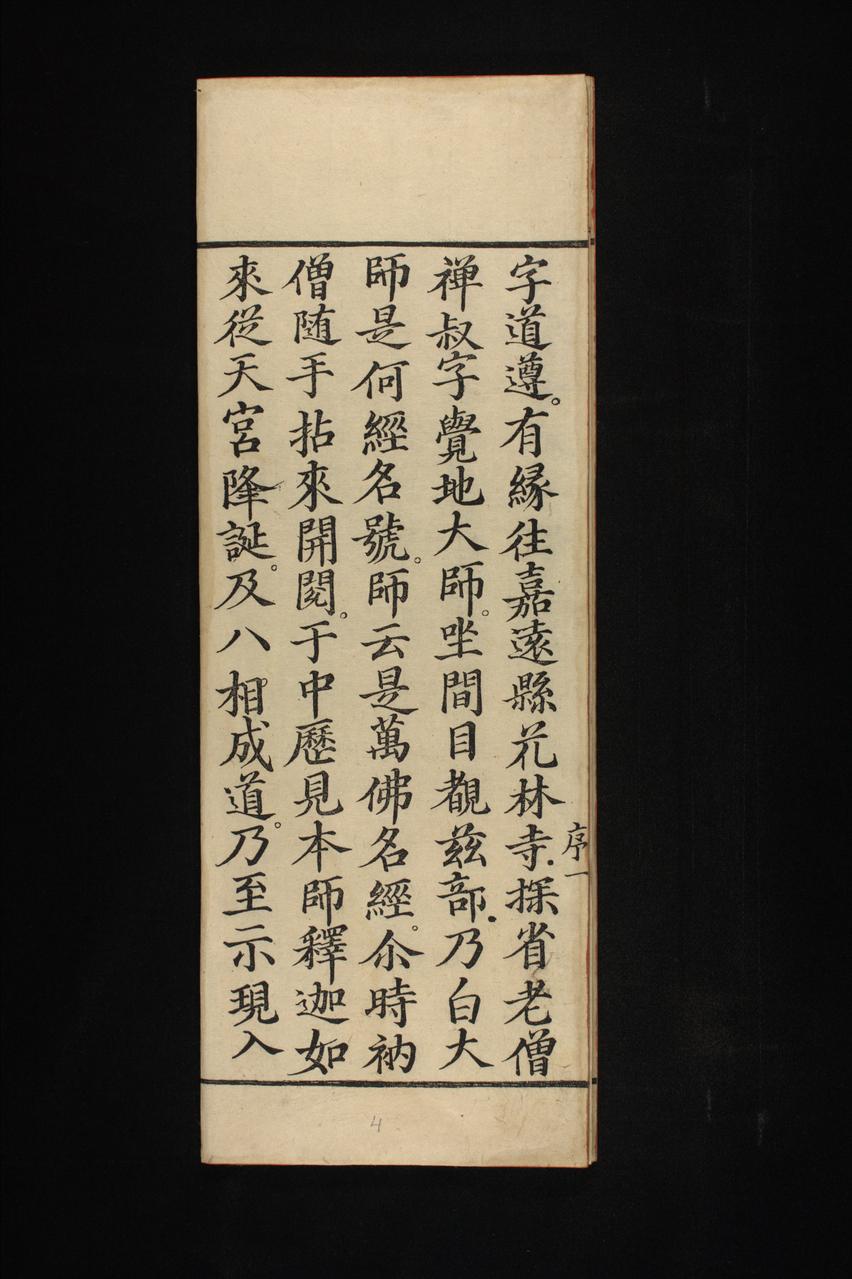 字道遵。有縁往嘉遠縣花林寺.探省老僧
禅叔字覺地大師。坐間目覩茲部.乃白大
師是何經名號。師云是萬佛名經。尒時衲
僧随手拈來開閱。于中歷見本師釋迦如
來從天宮降誕。及八相。成道。乃至示現入
序一
4